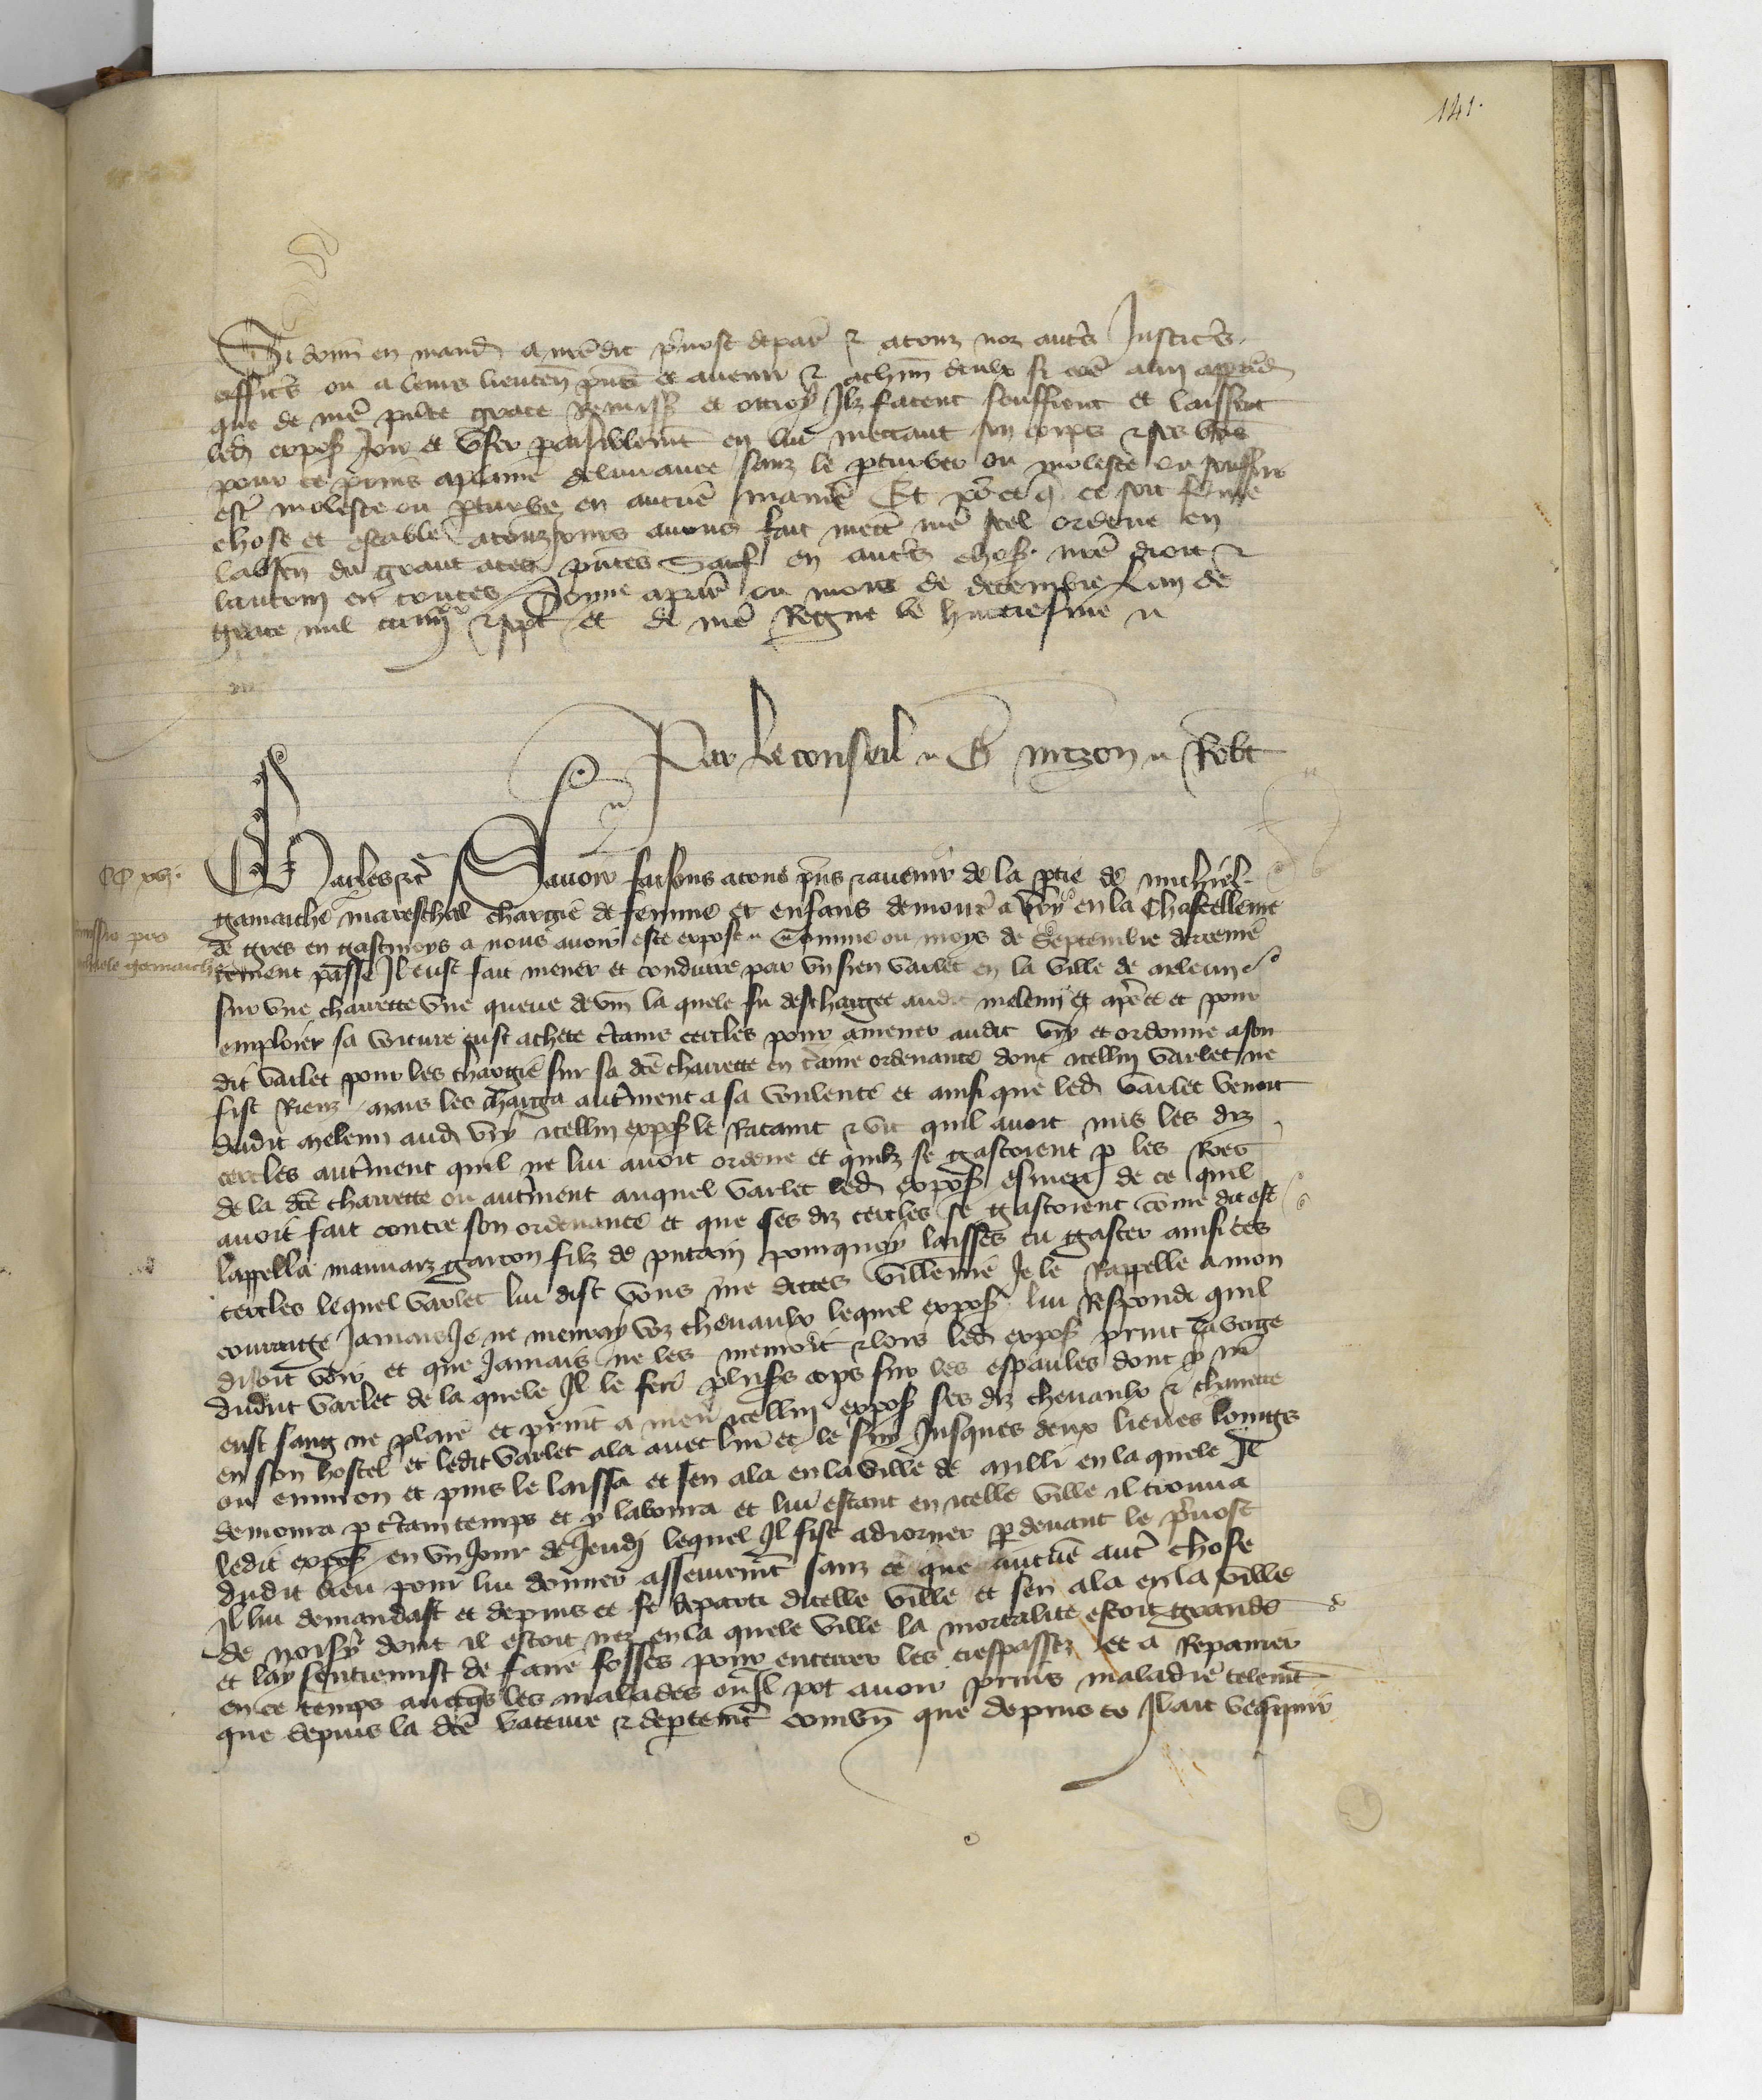 141.
Si donn en mand a nredit pvost de par & a touz noz autrs Justicrs
officrs ou a leurs lieuten pns et avenir & a chun deulx si cõe a lui apptẽd
que de nre pnte grace Remiss et ottroy Ilz facent seuffrent et laissent
led expos Joir et User paisiblemt en lui mettant son corps & ses biẽs
pour ce prins a plaine delivrance sanz le pturber ou molestẽ ou souffrir
estr moleste ou pturbe en aucuẽ manie Et pr ce q ce soit ferme
chose et estable a touzjours avons fait mettr nre seel ordene en
labsen du grant a ces pntes Sauf en autrs choses nre droit &
lautruy en toutes Donne a par ou mois de decembre Lan de
grace mil ccc iiijxx & sept et de nre Regne le huitiesme
Par le conseil G mgzon Robt
CC xvj.
Charles &c Savoir faisons a tous pns & avenir de la ptie de michiel
gamaiche mareschal chargie de femme et enfans demourr a Ury en la Chastellenie
de gres en gastinoys a nous avoir este expose Comme ou moys de Septembre derrenie
rement passe Il eust fait mener et conduire par un sien varlet en la ville de meleun
sur une charrette une queue de vin la quele fu deschargee audit meleun et apres ce et pour
emploier sa voiture eust achete ctains cercles pour amener audit Ury et ordonne a son
dit varlet pour les chargie sur sa dce charrette en ctaine ordenance dont icellui varlet ne
fist Riens mais les charga autrment a sa voulente et ainsi que led varlet venoit
dudit meleun aud Ury icellui expos le Rataint & vit quil avoit mis les diz
cercles autrment quil ne lui avoit ordene et quilz se gastoient p les Roes
de la dce charrette ou autrment auquel varlet led expos esmeu de ce quil
avoit fait contre son ordenance et que ses diz cercles se gastoient cõme dit est
lappella mauvaiz garcon filz de putain pourquoy laisses tu gaster ainsi ces
cercles lequel varlet lui dist vous me dittes villenie Je le Rappelle a mon
courage Jamais Je ne menray voz chevaulx lequel expos lui Respondi quil
disoit voir et que Jamais ne les menroit & lors led expos print la verge
dudit varlet de la quele Il le feri plusrs cops sur les espaules dont p ni
eust sang ne plaie et print a mener icellui expos ses diz chevaulx & charrette
en son hostel et ledit varlet ala avec lui et le suy Jusques deux lieues loings
ou environ et puis le laissa et sen ala en la ville de milli en la quele Il
demoura p ctain temps et y laboura et lui estant en icelle ville il trouva
ledit expos en un Jour de Jeudi lequel Il fist adjorner pdevant le pvost
dudit lieu pour lui donner asseuremt sanz ce que aucuẽ autr chose
Il lui demandast et depuis ce se departi dicelle ville et sen ala en la ville
de noisy dont il estoit nez en la quele ville la mortalite estoit grande
et lay sentremist de faire fosses pour enterrer les trespassez et a Repairier
en ce temps avecqs les malades ou Il pot avoir prins maladie telemt
que depuis la dce bateure & deptemt combn que depuis ce Il ait vesqui